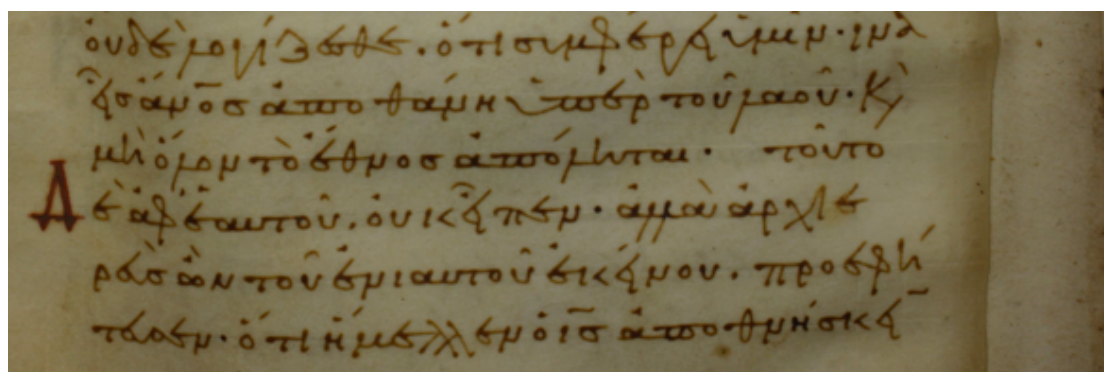 ουδὲ λογίζεσθε. ὅτι συμφέρει ἡμῖν. ἵνα
εἷς ἄνος ἀποθάνη ὑπὲρ τοῦ λαοῦ. κὶ
μὴ ὅλον τὸ ἔθνος ἀπόληται. τοῦτο
Δὲ ἀφ ἑαυτοῦ. οὐκ εἶπεν. ἀλλὰ ἀρχιε
ρεὺς ὢν τοῦ ἐνιαυτοῦ ἐκείνου. προεφή
τευσεν. ὅτι ἤμελλεν ὁ ις ἀποθνήσκειν